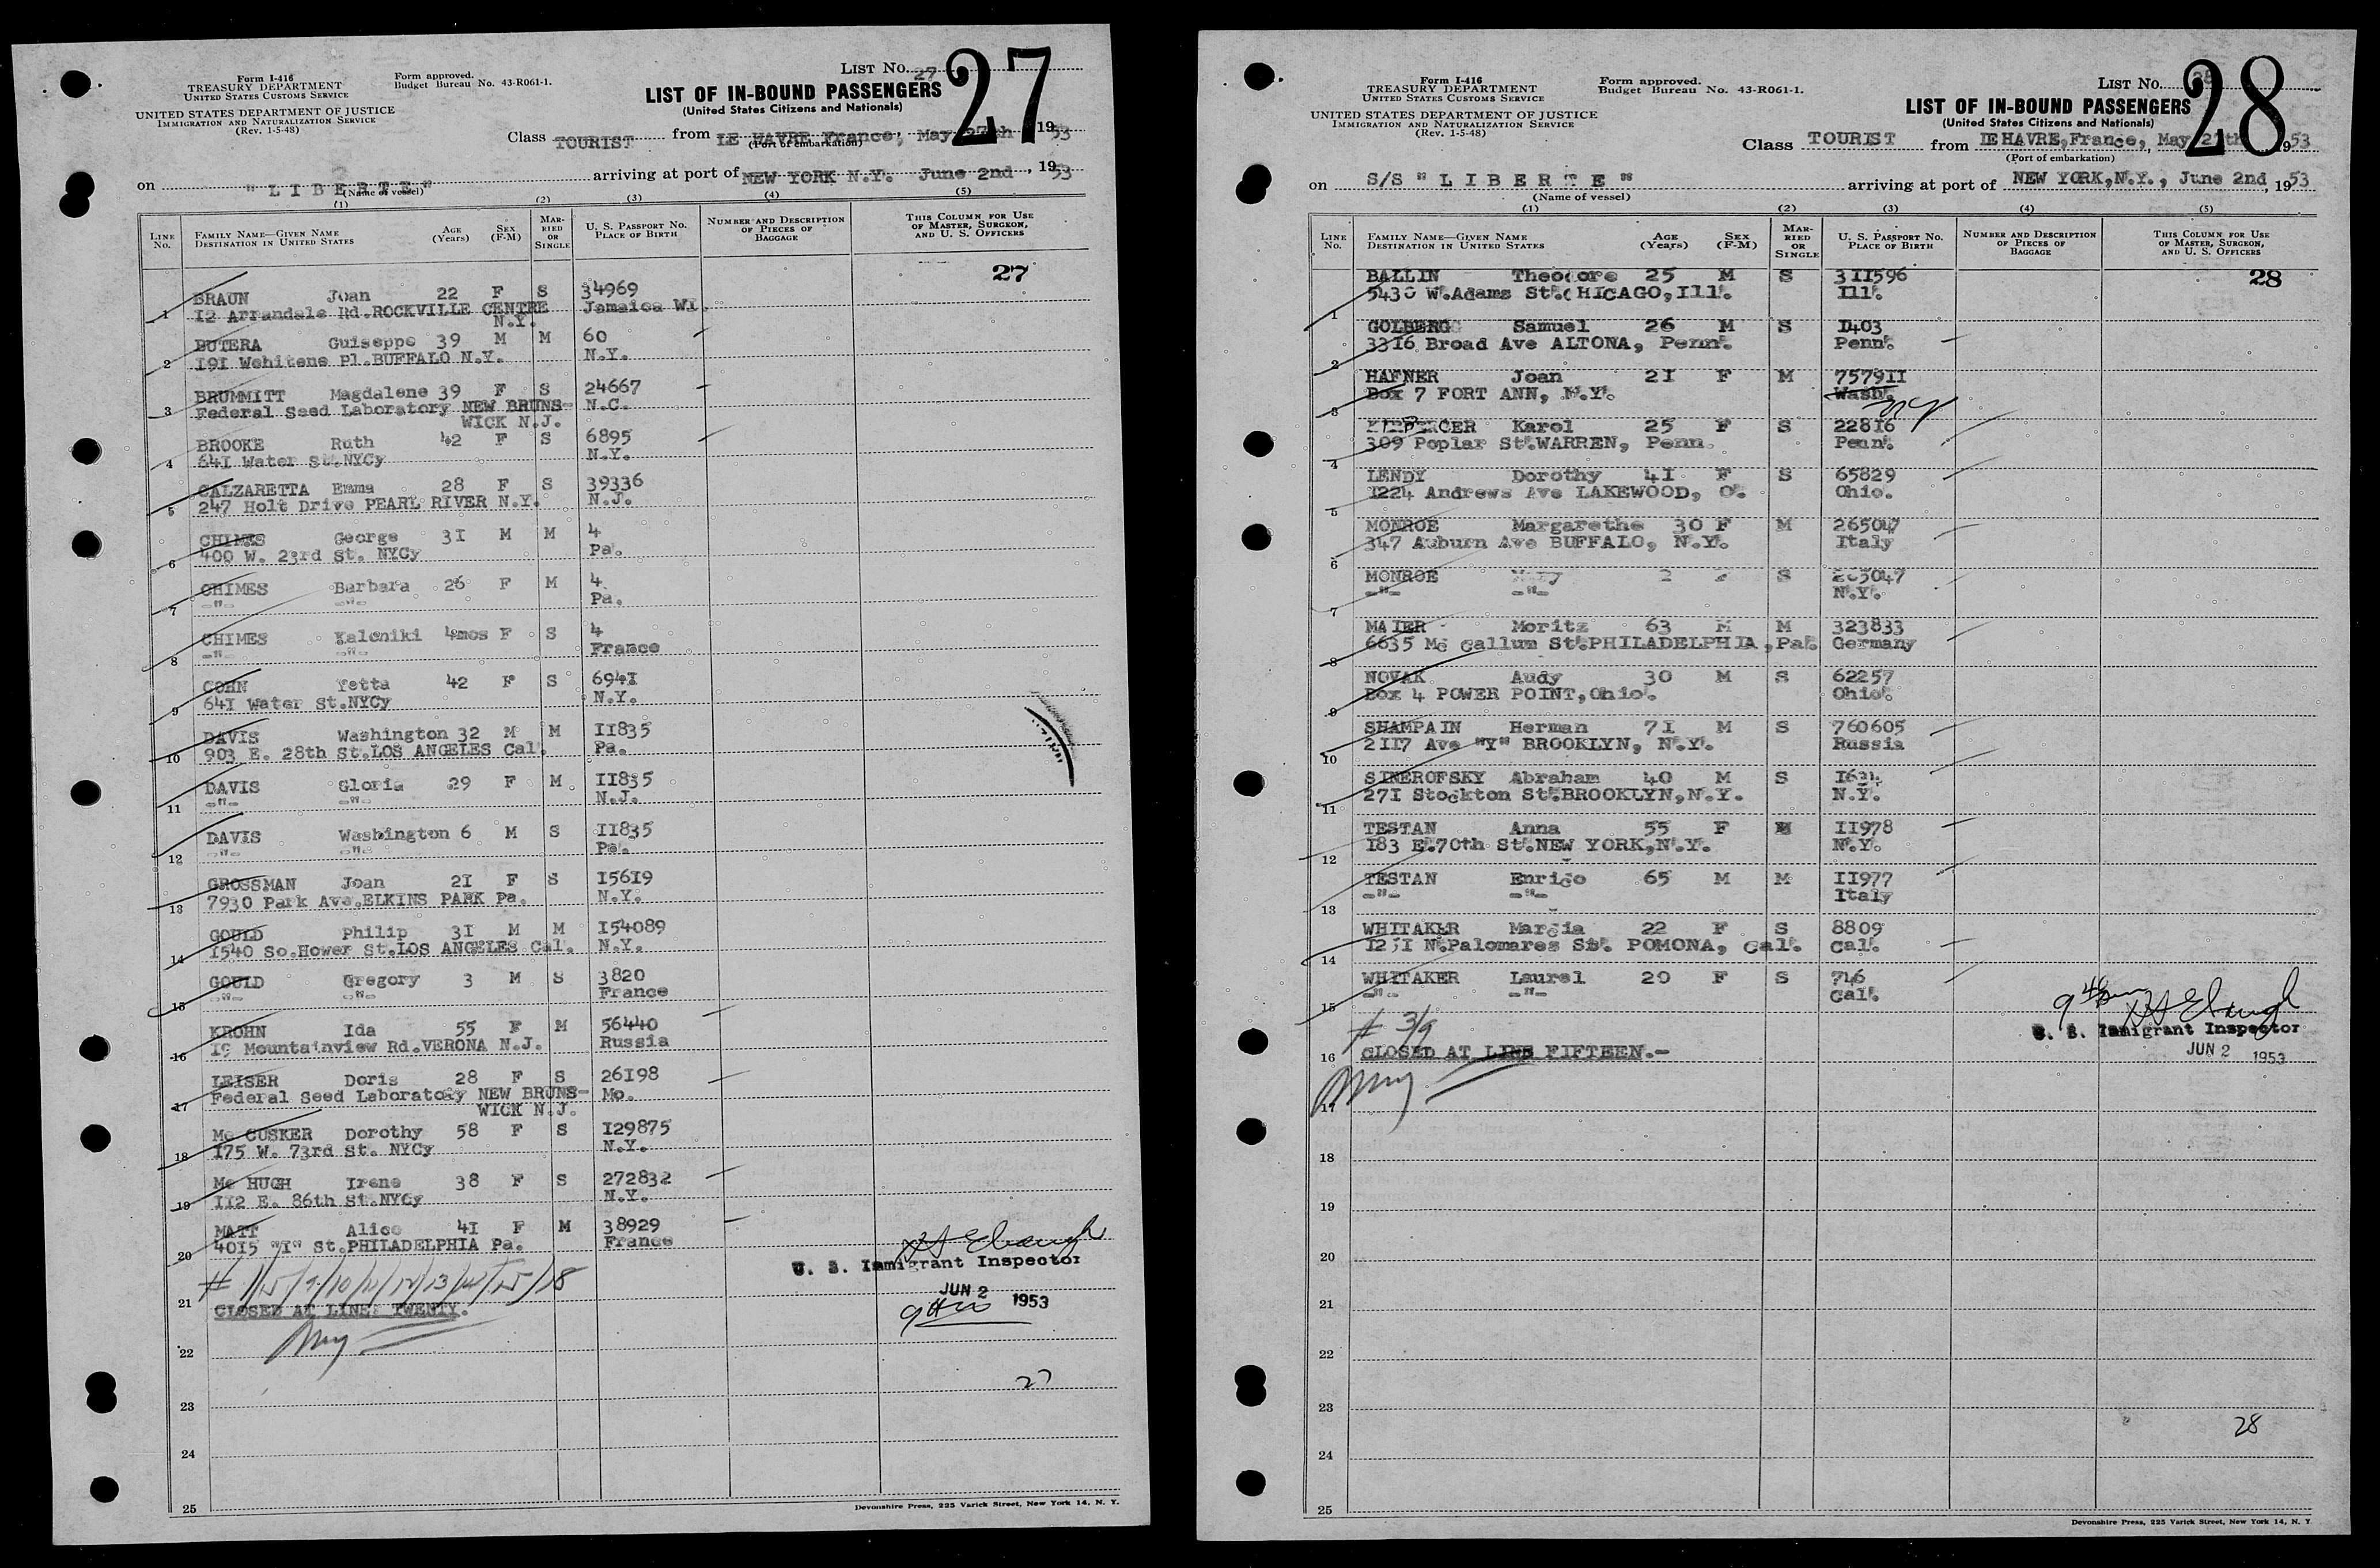 Form I-416
TREASURY DEPARTMENT
UNITED STATES CUSTOMS SERVICE
UNITED STATES DEPARTMENT OF JUSTICE
IMMIGRATION AND NATURALIZATION SERVICE
(Rev. 1-5-48)
Form approved.
Budget Bureau No. 43-R061-1.
LIST No. 27
27
LIST OF IN-BOUND PASSENGERS
(United States Citizens and Nationals)
Class TOURIST from LE HAVRE France, May 27th 1953
(Port of embarkation)
on "LIBERTE" arriving at port of NEW YORK N.Y. June 2nd, 1953
(Name of vessel)
(1) (2) (3) (4) (5)
LINE No. FAMILY NAME—GIVEN NAME DESTINATION IN UNITED STATES AGE (Years) SEX (F-M) MARRIED OR SINGLE U. S. PASSPORT NO. PLACE OF BIRTH NUMBER AND DESCRIPTION OF PIECES OF BAGGAGE THIS COLUMN FOR USE OF MASTER, SURGEON, AND U. S. OFFICERS
27
BRAUN Joan 22 F S 34969
1 12 Arrandale Rd.ROCKVILLE CENTRE N.Y. Jamaica WI.
BUTERA Guiseppe 39 M M 60
2 191 Wehitene Pl.BUFFALO N.Y. N.Y.
BRUMMITT Magdalene 39 F S 24667
3 Federal Seed Laboratory NEW BRUNS- N.C.
WICK N.J.
BROOKE Ruth 42 F S 6895
4 641 Water St.NYCy N.Y.
CALZARETTA Emma 28 F S 39336
5 247 Holt Drive PEARL RIVER N.Y. N.J.
CHIMES George 31 M M 4
6 400 W. 23rd St. NYCy Pa.
CHIMES Barbara 26 F M 4
7 -"- -"- Pa.
CHIMES Kaloniki 4mos F S 4
8 -"- -"- France
COHN Yetta 42 F S 6941
9 641 Water St.NYCy N.Y.
DAVIS Washington 32 M M 11835
10 903 E. 28th St.LOS ANGELES Cal. Pa.
DAVIS Gloria 29 F M 11835
11 -"- -"- N.J.
DAVIS Washington 6 M S 11835
12 -"- -"- Pa.
GROSSMAN Joan 21 F S 15619
13 7930 Park Ave.ELKINS PARK Pa. N.Y.
GOULD Philip 31 M M 154089
14 1540 So.Hower St.LOS ANGELES Cal. N.Y.
GOULD Gregory 3 M S 3820
15 -"- -"- France
KROHN Ida 55 F M 56440
16 19 Mountainview Rd.VERONA N.J. Russia
LEISER Doris 28 F S 26198
17 Federal Seed Laboratory NEW BRUNS- Mo.
WICK N.J.
Mc CUSKER Dorothy 58 F S 129875
18 175 W. 73rd St. NYCy N.Y.
Mc HUGH Irene 38 F S 272832
19 112 E. 86th St.NYCy N.Y.
MATT Alice 41 F M 38929
20 4015 "I" St.PHILADELPHIA Pa. France
U. S. Immigrant Inspector
JUN 2 1953
21 CLOSED AT LINE: TWENTY.
22
27
23
24
25
Devonshire Press, 225 Varick Street, New York 14, N. Y.
Form I-416
TREASURY DEPARTMENT
UNITED STATES CUSTOMS SERVICE
UNITED STATES DEPARTMENT OF JUSTICE
IMMIGRATION AND NATURALIZATION SERVICE
(Rev. 1-5-48)
Form approved.
Budget Bureau No. 43-R061-1.
LIST No. 28
28
LIST OF IN-BOUND PASSENGERS
(United States Citizens and Nationals)
Class TOURIST from LE HAVRE,France, May 27th 1953
(Port of embarkation)
on S/S "LIBERTE" arriving at port of NEW YORK,N.Y., June 2nd, 1953
(Name of vessel)
(1) (2) (3) (4) (5)
LINE No. FAMILY NAME—GIVEN NAME DESTINATION IN UNITED STATES AGE (Years) SEX (F-M) MARRIED OR SINGLE U. S. PASSPORT NO. PLACE OF BIRTH NUMBER AND DESCRIPTION OF PIECES OF BAGGAGE THIS COLUMN FOR USE OF MASTER, SURGEON, AND U. S. OFFICERS
28
BALLIN Theodore 25 M S 311596
1 5430 W.Adams St.CHICAGO,Ill. Ill.
GOLBERG Samuel 26 M S 1403
2 3316 Broad Ave ALTONA, Penn. Penn.
HAFNER Joan 21 F M 757911
3 Box 7 FORT ANN, N.Y. Wash. NY
Karol 25 F S 22816
4 309 Poplar St.WARREN, Penn. Penn.
LENDY Dorothy 41 F S 65829
5 1224 Andrews Ave LAKEWOOD, O. Ohio.
MONROE Margarethe 30 F M 265047
6 347 Auburn Ave BUFFALO, N.Y. Italy
MONROE 2 S 265047
7 -"- -"- N.Y.
MAIER Moritz 63 M M 323833
8 6635 Mc Callum St.PHILADELPHIA,Pa. Germany
NOVAK Audy 30 M S 62257
9 Box 4 POWER POINT,Ohio. Ohio.
SHAMPAIN Herman 71 M S 760605
10 2117 Ave "Y" BROOKLYN, N.Y. Russia
SINEROFSKY Abraham 40 M S
11 271 Stockton St.BROOKLYN,N.Y. N.Y.
TESTAN Anna 55 F M 11978
12 183 E.70th St.NEW YORK,N.Y. N.Y.
TESTAN Enrico 65 M M 11977
13 -"- -"- Italy
WHITAKER Marcia 22 F S 8809
14 1251 N.Palomares St. POMONA, Cal. Cal.
WHITAKER Laurel 20 F S 746
15 -"- -"- Cal.
# 3/9
U. S. Immigrant Inspector
JUN 2 1953
16 CLOSED AT LINE FIFTEEN.-
17
18
19
20
21
22
23
28
24
25
Devonshire Press, 225 Varick Street, New York 14, N. Y.